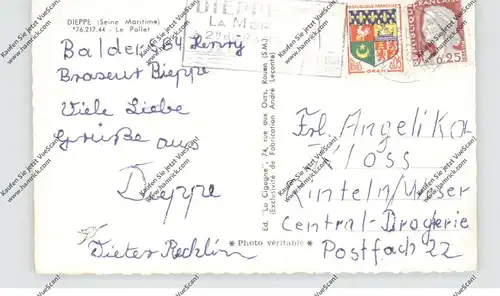 DIEPPE (Seine Maritime)
*76.217.44 - Le Pollet
DIEPPE
LA MER
REPUBLIQUE FRANÇAISE
ORAN
0,05
FRANÇAISE
0,25
Henry
Dieppe
Viele Liebe
Grüße aus
Dieppe
Dieter
Ed. "La Cigogne", 74, rue aux Ours, Rouen (S.M.)
(Exclusivité de Fabrication André Leconte)
* Photo véritable *
Frl. Angelika
Kloss
Rinteln/Weser
Central-Drogerie
Postfach 22
Kaufen Sie jetzt VueScan!
www.hamrick.com